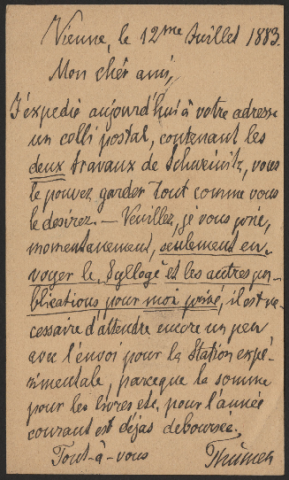 Vienne, le 12me Juillet 1883.
Mon chér ami,
J'expedie aujourd'hui à votre adresse
un colli postal, contenant les
deux travaux de Schweinitz, vous
le pouvez garder tout comme vous
le desirez. — Veuillez, je vous prie,
momentanement, seulement en-
voyer le Sylloge et les autres pu-
blications pour moi privé, il est ne-
cessaire d'attendre encore un peu
avec l'envoi pour la Station expé-
rimentale, parceque la somme
pour les livres etc. pour l'année
courant est déjas deboursée.
Tout-à-vous Thümen